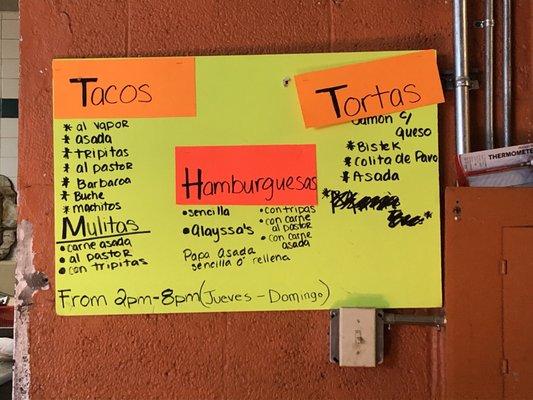 Tacos
* al vapor
* asada
* tripitas
* al pastor
* Barbacoa
* Buche
* machitos
Mulitas
• carne asada
• al pastor
• con tripitas
Hamburguesas
• sencilla
• Alayssa's
• con tripas
• con carne al pastor
• con carne asada
Papa Asada
sencilla o' rellena
Tortas
Jamon c/
queso
* Bistek
* Colita de Pavo
* Asada
From 2pm-8pm (Jueves - Domingo)
THERMOMETE